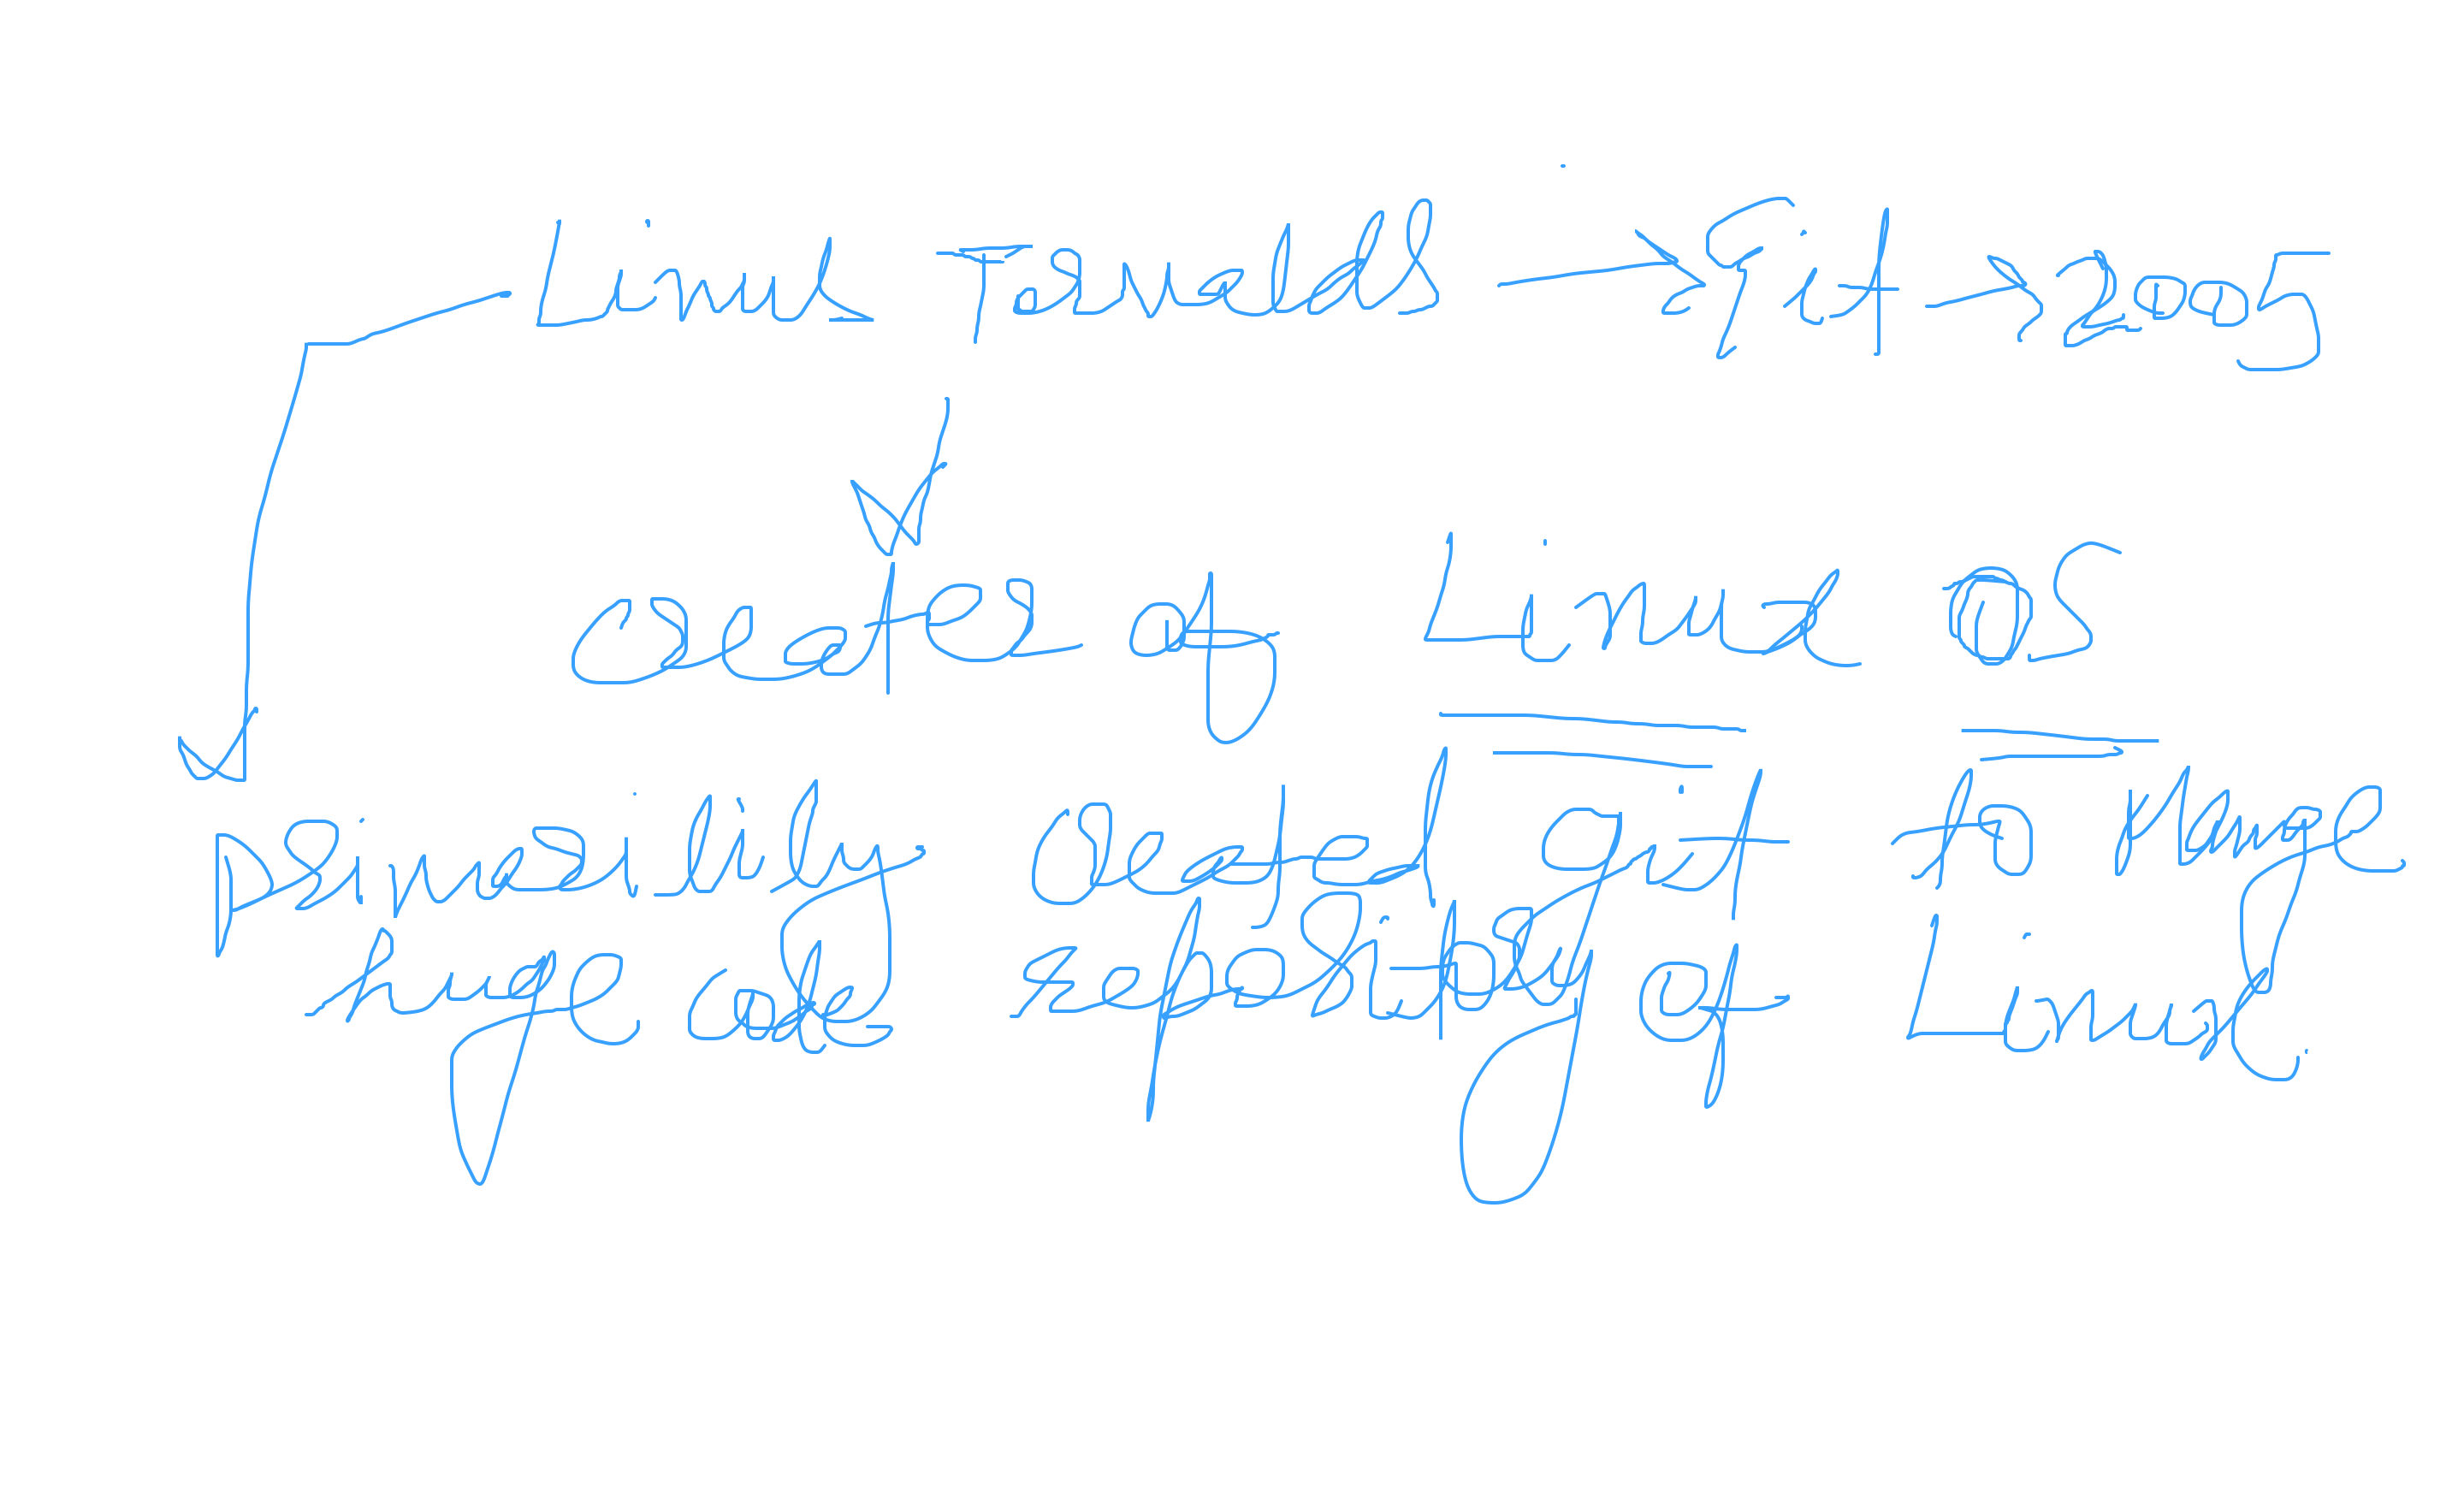 Linus Torvalds → Git → 2005
creater of Linux OS
primarily created git to manage
huge code repositories of Linux.